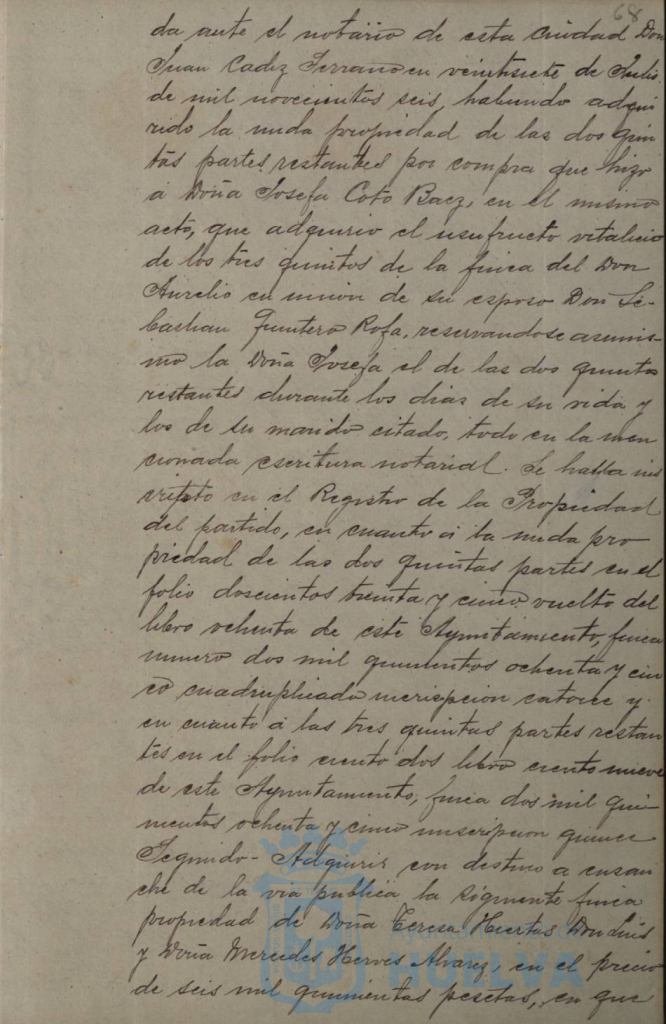 68
da ante el notario de esta ciudad Don
Juan Cadiz Serrano en veintisiete de Julio
de mil novecientos seis, habiendo adqui
rido la nuda propiedad de las dos quin
tas partes restantes por compra que hizo
a Doña Josefa Coto Baez, en el mismo
acto, que adquirio el usufructo vitalicio
de los tres quintos de la finca del Don
Aurelio en union de su esposo Don Se
bastian Quintero Rofa, reservandose asimis-
mo la Doña Josefa el de las dos quintas
restantes durante los dias de su vida y
los de su marido citado, todo en la men
cionada escritura notarial. Se halla ins
cripto en el Registro de la Propiedad
del partido, en cuanto a la nuda pro
piedad de las dos quintas partes en el
folio doscientos treinta y cinco vuelto del
libro ochenta de este Ayuntamiento, finca
numero dos mil quinientos ochenta y cin
co cuadruplicado inscripcion catorce y
en cuanto a las tres quintas partes restan
tes en el folio ciento dos libro ciento nueve
de este Ayuntamiento, finca dos mil qui
nientos ochenta y cinco inscripcion quince
Segundo- Adquirir con destino a ensan
che de la via publica la siguiente finca
propiedad de Doña Teresa Huertas Don Luis
y Doña Mercedes Hervés Alvarez, en el precio
de seis mil quinientas pesetas, en que
HUELVA